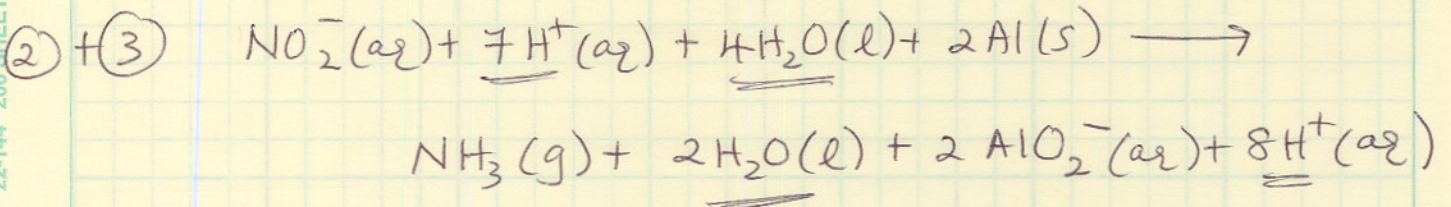 ② + ③ NO₂⁻(aq) + 7H⁺(aq) + 4H₂O(l) + 2Al(s) ⟶
NH₃(g) + 2H₂O(l) + 2AlO₂⁻(aq) + 8H⁺(aq)